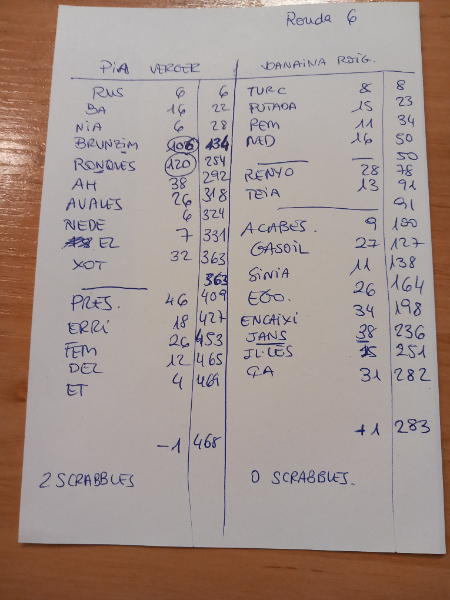 Ronda 6
PIA VERGER
RUS 6 6
BA 16 22
NIA 6 28
BRUNZIM 106 134
RONQUES 120 254
AH 38 292
AVALES 26 318
NEDE 6 324
EZ 7 331
XOT 32 363
363
PRES. 46 409
ERRI 18 427
FEM 26 453
DEL 12 465
ET 4 469
-1 468
2 SCRABBLES
JOANAINA ROIG.
TURC 8 8
POTADA 15 23
REM 11 34
MD 16 50
— 50
RENYO 28 78
TEIA 13 91
91
ACABES. 9 100
GASOIL 27 127
SINIA 11 138
EGO. 26 164
ENCAIXI 34 198
JANS 38 236
JL·LES 15 251
ÇA 31 282
+1 283
0 SCRABBLES.